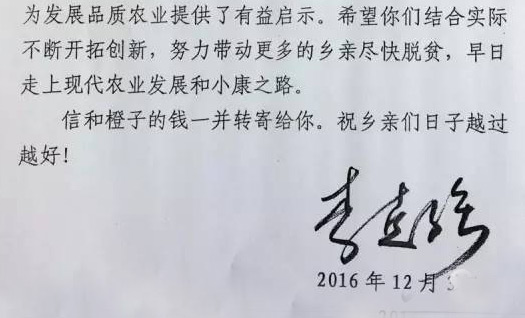 为发展品质农业提供了有益启示。希望你们结合实际
不断开拓创新，努力带动更多的乡亲尽快脱贫，早日
走上现代农业发展和小康之路。
信和橙子的钱一并转寄给你。祝乡亲们日子越过
越好！
2016年12月